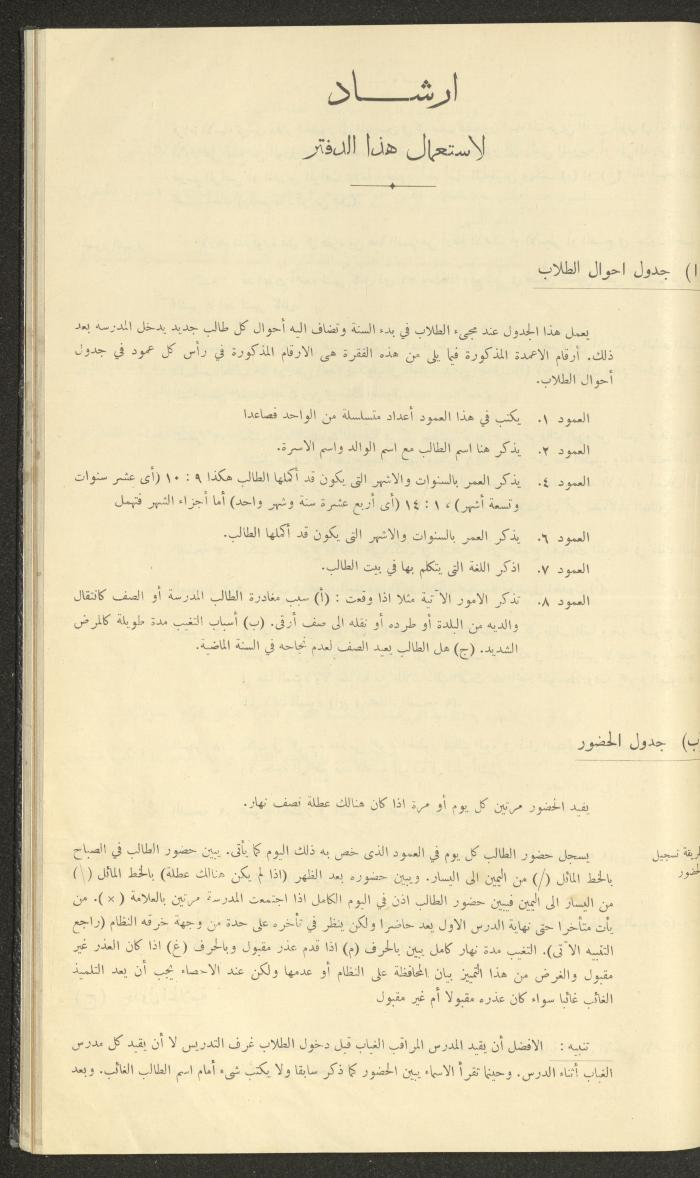 ارشـــاد
لاستعمال هذا الدفتر
ا) جدول احوال الطلاب
يعمل هذا الجدول عند مجىء الطلاب في بدء السنة وتضاف اليه أحوال كل طالب جديد يدخل المدرسه بعد
ذلك. أرقام الاعمدة المذكورة فيما يلى من هذه الفقرة هى الارقام المذكورة في رأس كل عمود في جدول
أحوال الطلاب.
العمود ١. يكتب في هذا العمود أعداد متسلسلة من الواحد فصاعدا
العمود ٢. يذكر هنا اسم الطالب مع اسم الوالد واسم الاسرة.
العمود ٤. يذكر العمر بالسنوات والاشهر التى يكون قد أكملها الطالب هكذا ٩ : ١٠ (أى عشر سنوات
وتسعة أشهر) ، ١ : ١٤ (أى أربع عشرة سنة وشهر واحد) أما أجزاء الشهر فتهمل
العمود ٦. يذكر العمر بالسنوات والاشهر التى يكون قد أكملها الطالب.
العمود ٧. اذكر اللغة التى يتكلم بها في بيت الطالب.
العمود ٨. تذكر الامور الآتية مثلا اذا وقعت : (أ) سبب مغادرة الطالب المدرسة أو الصف كانتقال
والديه من البلدة أو طرده أو نقله الى صف أرقى. (ب) أسباب التغيب مدة طويلة كالمرض
الشديد. (ج) هل الطالب يعيد الصف لعدم نجاحه في السنة الماضية.
ب) جدول الحضور
يقيد الحضور مرتين كل يوم أو مرة اذا كان هنالك عطلة نصف نهار.
ريقة تسجيل
لحضور
يسجل حضور الطالب كل يوم في العمود الذى خص به ذلك اليوم كما يأتى. يبين حضور الطالب في الصباح
بالخط المائل (/) من اليمين الى اليسار. ويبين حضوره بعد الظهر (اذا لم يكن هنالك عطلة) بالخط المائل (\)
من اليسار الى اليمين فيبين حضور الطالب اذن في اليوم الكامل اذا اجتمعت المدرسة مرتين بالعلامة (×). من
يأت متأخرا حتى نهاية الدرس الاول يعد حاضرا ولكن ينظر في تأخره على حدة من وجهة خرقه النظام (راجع
التنبيه الآتى). التغيب مدة نهار كامل يبين بالحرف (م) اذا قدم عذر مقبول وبالحرف (غ) اذا كان العذر غير
مقبول والغرض من هذا التمييز بيان المحافظة على النظام أو عدمها ولكن عند الاحصاء يجب أن يعد التلميذ
الغائب غائبا سواء كان عذره مقبولا أم غير مقبول
تنبيه : الافضل أن يقيد المدرس المراقب الغياب قبل دخول الطلاب غرف التدريس لا أن يقيد كل مدرس
الغياب أثناء الدرس. وحينما تقرأ الاسماء يبين الحضور كما ذكر سابقا ولا يكتب شىء أمام اسم الطالب الغائب. وبعد